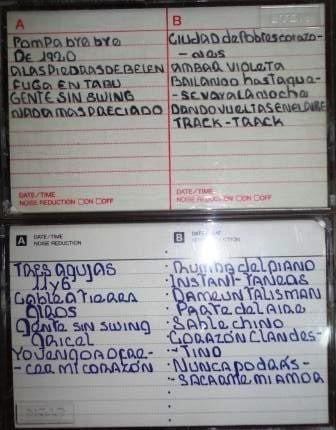 A
POMPA BYE BYE
DE 1920
A LAS PIEDRAS DE BELEN
FUGA EN TABU
GENTE SIN SWING
NADA MAS PRECIADO
DATE/TIME
NOISE REDUCTION ON OFF
B
CIUDAD de POBRES CORAZO-
-NES
AMBAR VIOLETA
BAILANDO hasta que
SE VAYA LA NOCHE
DANDO VUELTAS EN EL AIRE
TRACK-TRACK
DATE/TIME
NOISE REDUCTION ON OFF
A DATE/TIME
NOISE REDUCTION
TRES AGUJAS
11 y 6
CABLE A TIERRA
GIROS
GENTE SIN SWING
GRICEL
YO VENGO A OFRE-
-CER MI CORAZÓN
B DATE/TIME
NOISE REDUCTION
del PIANO
INSTANT-TANEAS
DAME UN TALISMAN
PARTE del AIRE
SABLE CHINO
CORAZÓN CLANDES-
-TINO
NUNCA PODRÁS-
SACARME MI AMOR